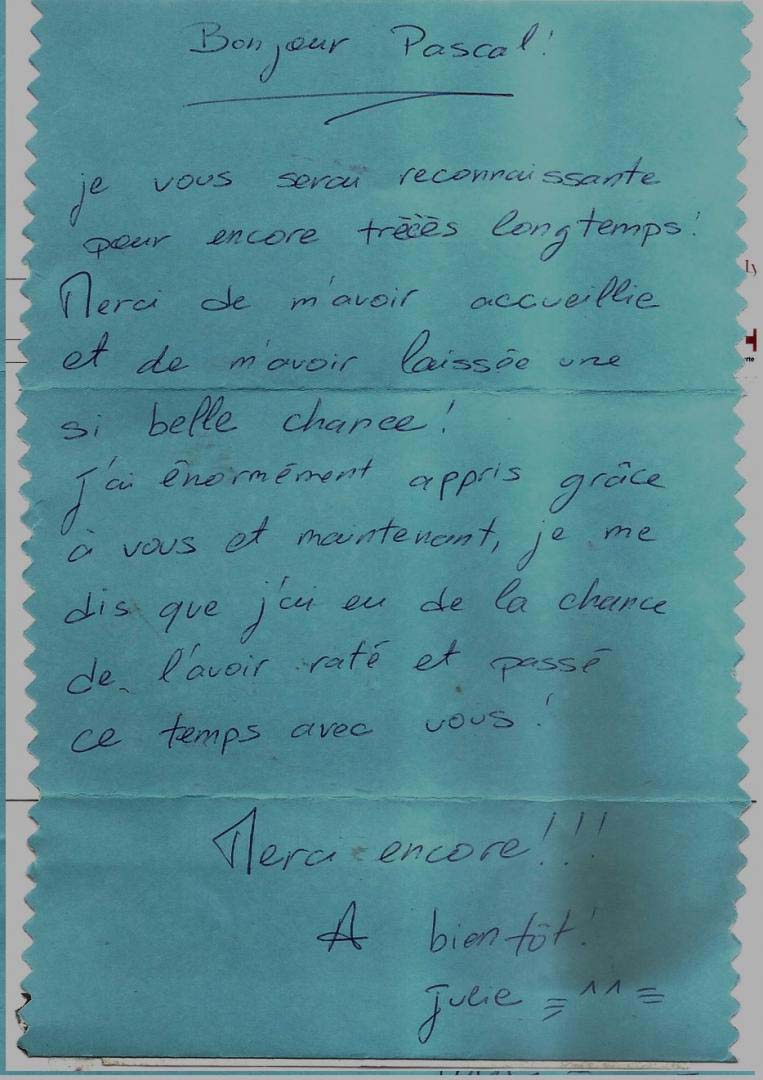 Bonjour Pascal!
je vous serai reconnaissante
pour encore trèèès longtemps!
Merci de m'avoir accueillie
et de m'avoir laissée une
si belle chance!
J'ai énormément appris grâce
à vous et maintenant, je me
dis que j'ai eu de la chance
de l'avoir raté et passé
ce temps avec vous!
Merci encore!!!
A bientôt!
Julie =^^=